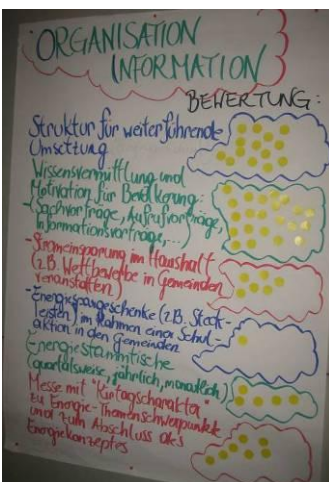 ORGANISATION
INFORMATION
BEWERTUNG:
Struktur für weiterführende
Umsetzung
Wissensvermittlung und
Motivation für Bevölkerung:
(Sachvorträge, Aufrufvorträge,
Informationsvorträge, ...)
- Stromeinsparung im Haushalt
(z.B. Wettbewerbe in Gemeinden
veranstalten)
- Energiespargeschenke (z.B. Steck-
leisten) im Rahmen einer Schul-
aktion in den Gemeinden
Energiestammtische
(quartalsweise, jährlich, monatlich)
Messe mit "Kirtagscharakter"
zu Energie-Themenschwerpunkte
und zum Abschluss des
Energiekonzeptes